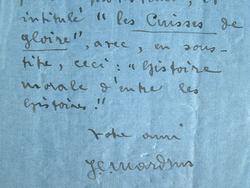 intitulé "les Cuisses de
gloire", avec, en sous-
titre, ceci : "Histoire
morale d'entre les
histoires."
Votre ami